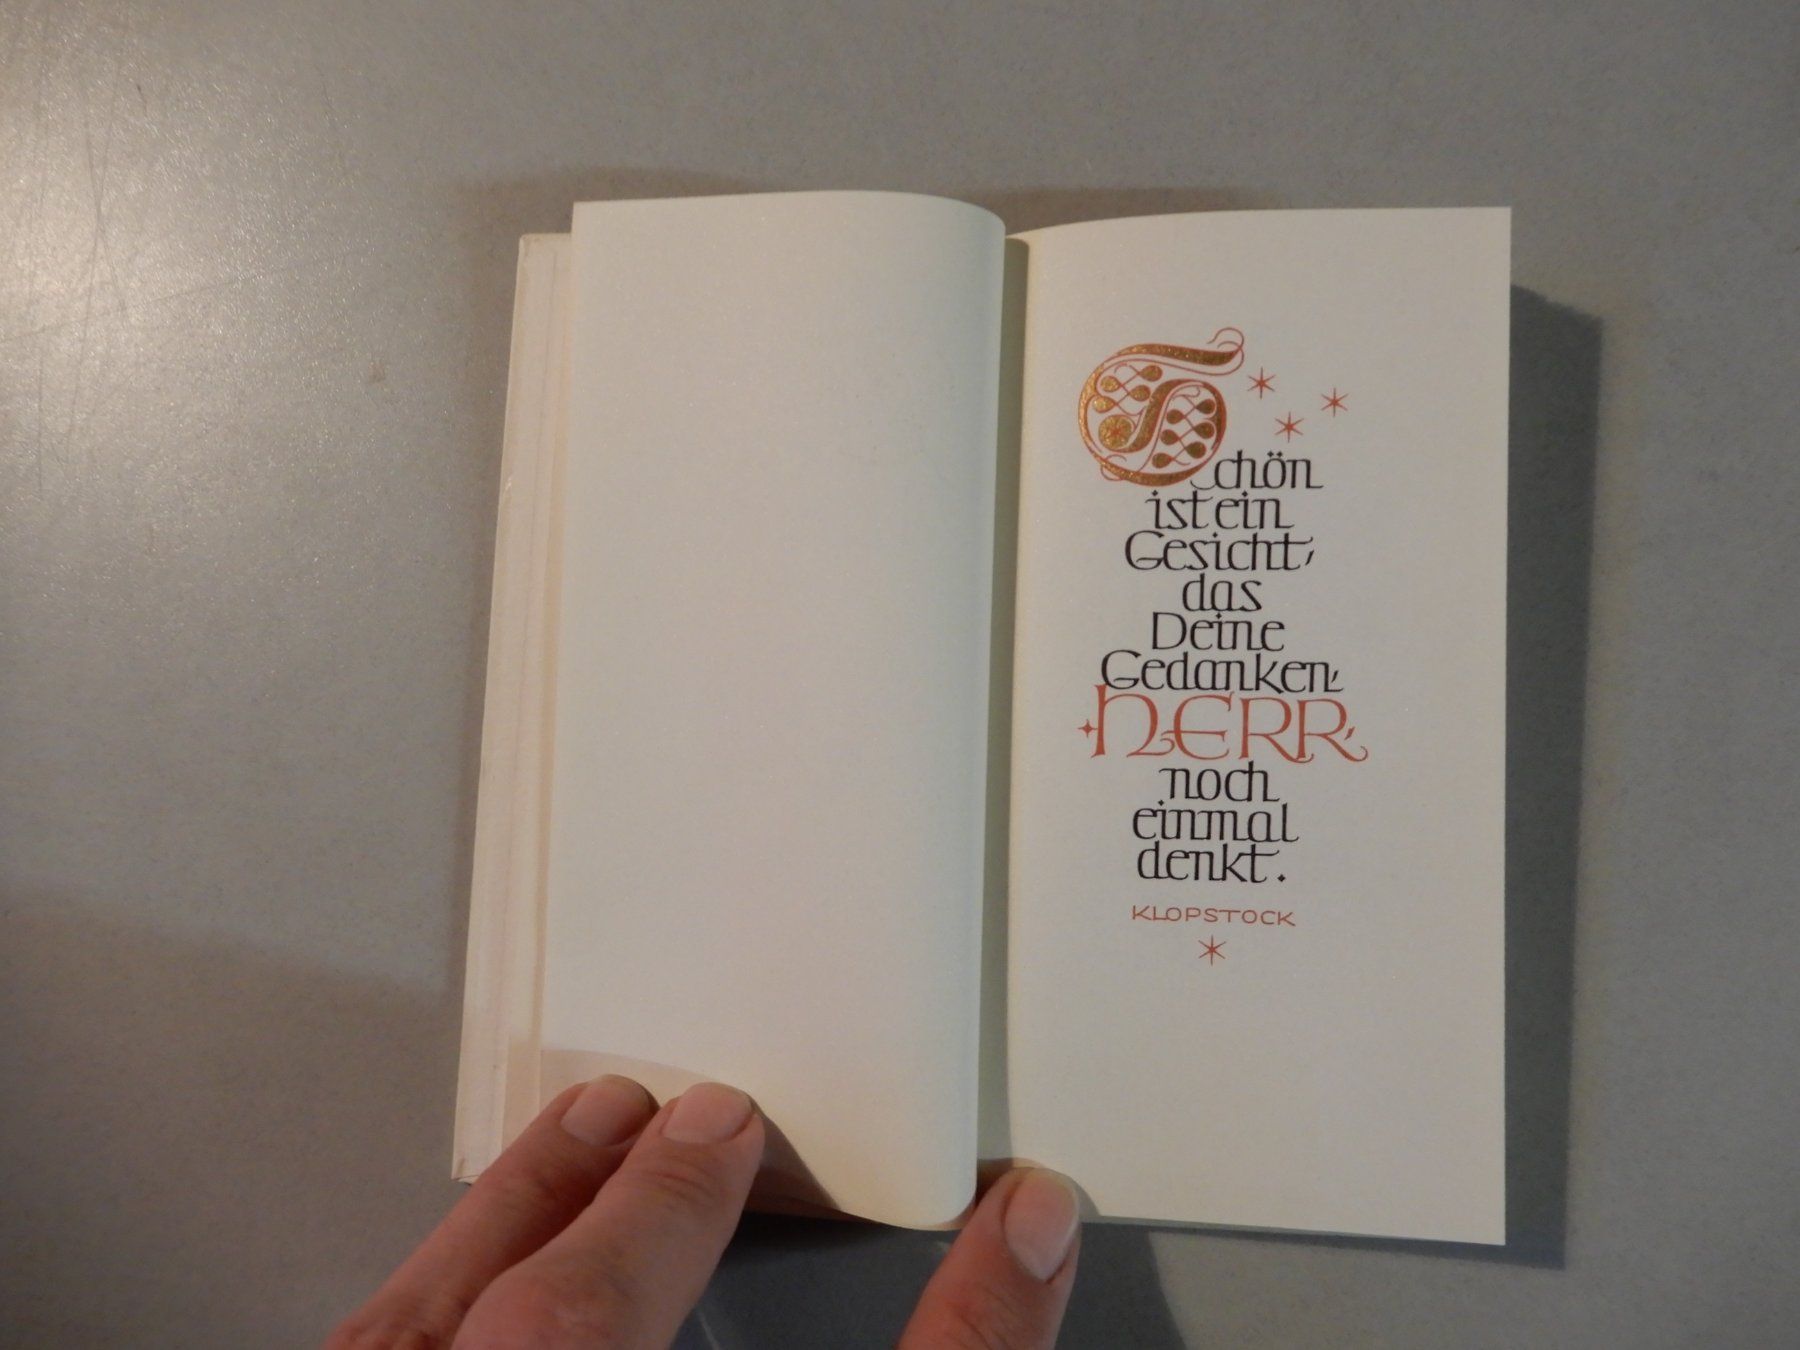 Schön
ist ein
Gesicht,
das
Deine
Gedanken,
HERR,
noch
einmal
denkt.
KLOPSTOCK